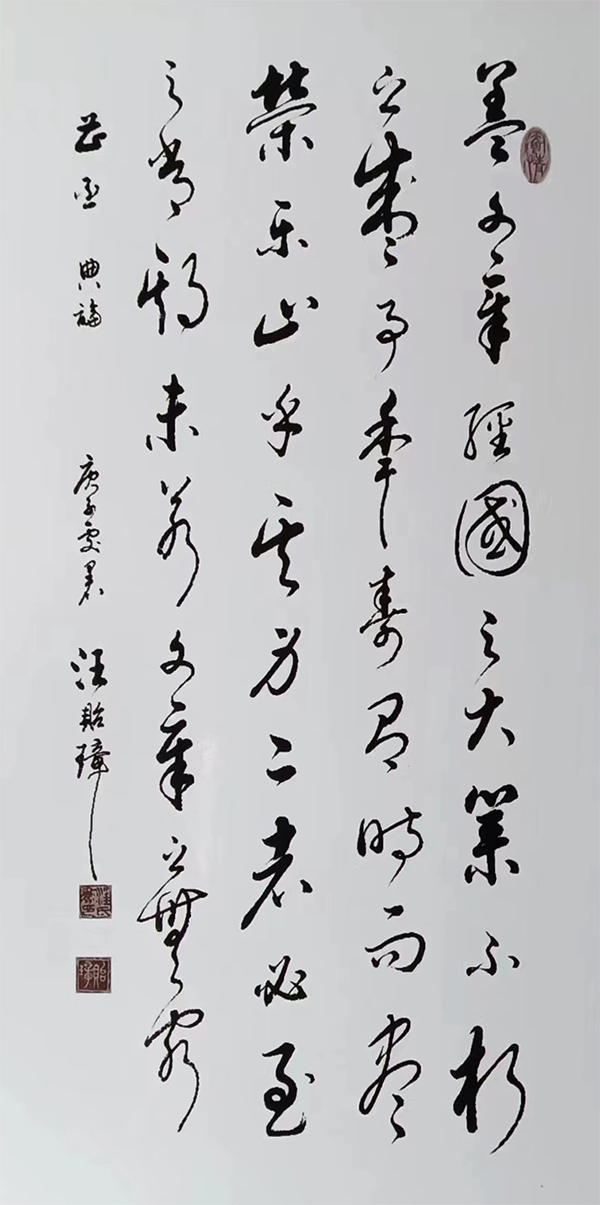 蓋文章經國之大業不朽
之盛事年壽有時而盡
榮樂止乎其身二者必至
之常期未若文章之無窮
曹丕 典論 庚子 汪貽璋
貽璋